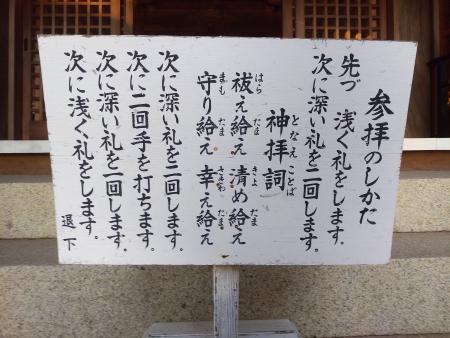 参拝のしかた
先づ 浅く礼をします。
次に深い礼を二回します。
神拝詞
となえことば
祓え給え 清め給え
はら たま きよ たま
守り給え 幸え給え
まも たま さきわ たま
次に深い礼を二回します。
次に二回手を打ちます。
次に深い礼を一回します。
次に浅く礼をします。
退下